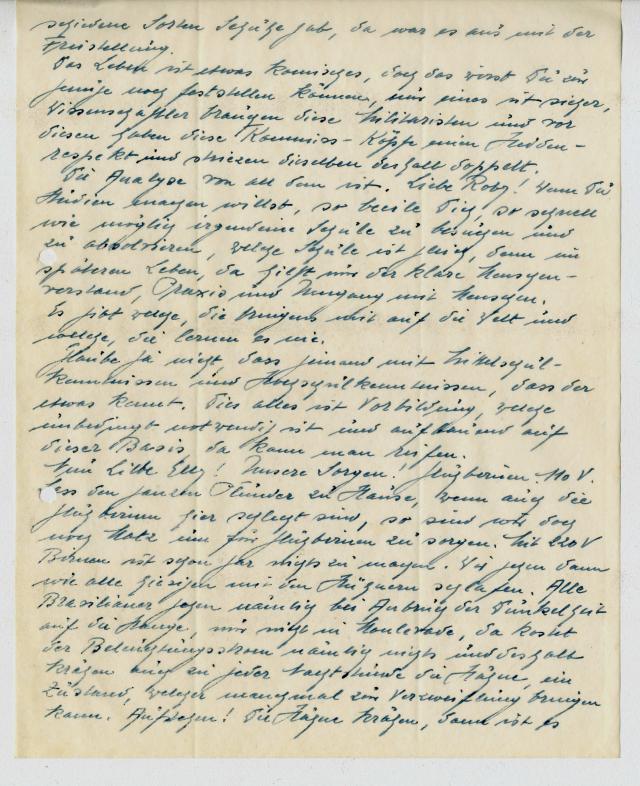 schiedene Sorten Schuhe gab, da war es aus mit der
Freistellung.
Das Leben ist etwas komisches, doch das wirst Du zur
genüge noch feststellen können, nur eines ist sicher,
Wissenschaftler brauchen diese Militaristen und vor
diesen haben diese Kommiss-Köpfe einen Heiden-
respekt und striezen dieselben deshalb doppelt.
Die Analyse von all dem ist. Liebe Roby! Wenn Du
Studien machen willst, so beeile Dich, so schnell
wie möglich irgendeine Schule zu besuchen und
zu absolvieren, welche Schule ist gleich, denn im
späteren Leben, da hilft nur der klare Menschen-
verstand, Praxis und Umgang mit Menschen.
Es gibt welche, die bringens mit auf die Welt und
welche, die lernen es nie.
Glaube ja nicht dass jemand mit Mittelschul-
kenntnissen und Hochschulkenntnissen, dass der
etwas kennt. Dies alles ist Vorbildung, welche
unbedingt notwendig ist und aufbauend auf
dieser Basis da kann man reifen.
Nun Liebe Elly! Unsere Sorgen! Glühbirnen 110 V.
Lass den ganzen Plunder zu Hause, wenn auch die
Glühbirnen hier schlecht sind, so sind wir doch
noch stolz um für Glühbirnen zu sorgen. Mit 220 V
Birnen ist schon gar nichts zu machen. Wir gehen dann
wie alle hiesigen mit den Hühnern schlafen. Alle
Brasilianer gehen nämlich bei Anbruch der Dunkelheit
auf die Stange, nur nicht in Monlevade, da kostet
der Beleuchtungsstrom nämlich nichts und deshalb
krähen auch zu jeder Nachtstunde die Hähne, ein
Zustand, welcher manchmal zur Verzweiflung bringen
kann. Aufstehen! Die Hähne krähen, dann ist es